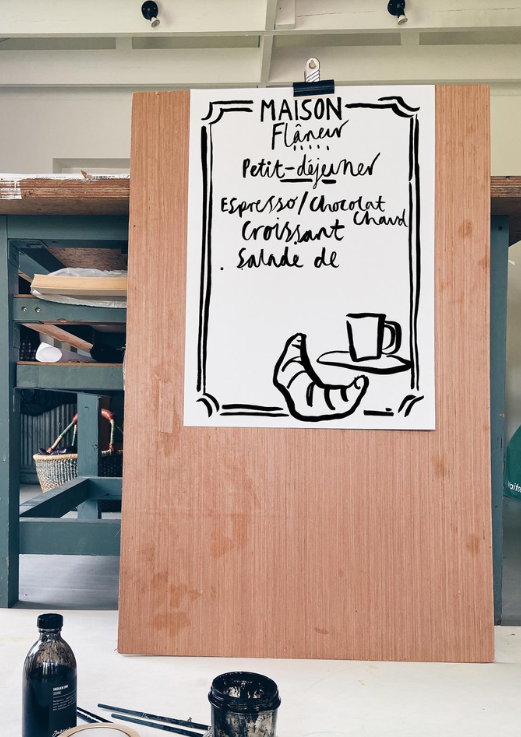 MAISON
Flâneur
Petit-déjeuner
Espresso/Chocolat
Chaud
Croissant
Salade de